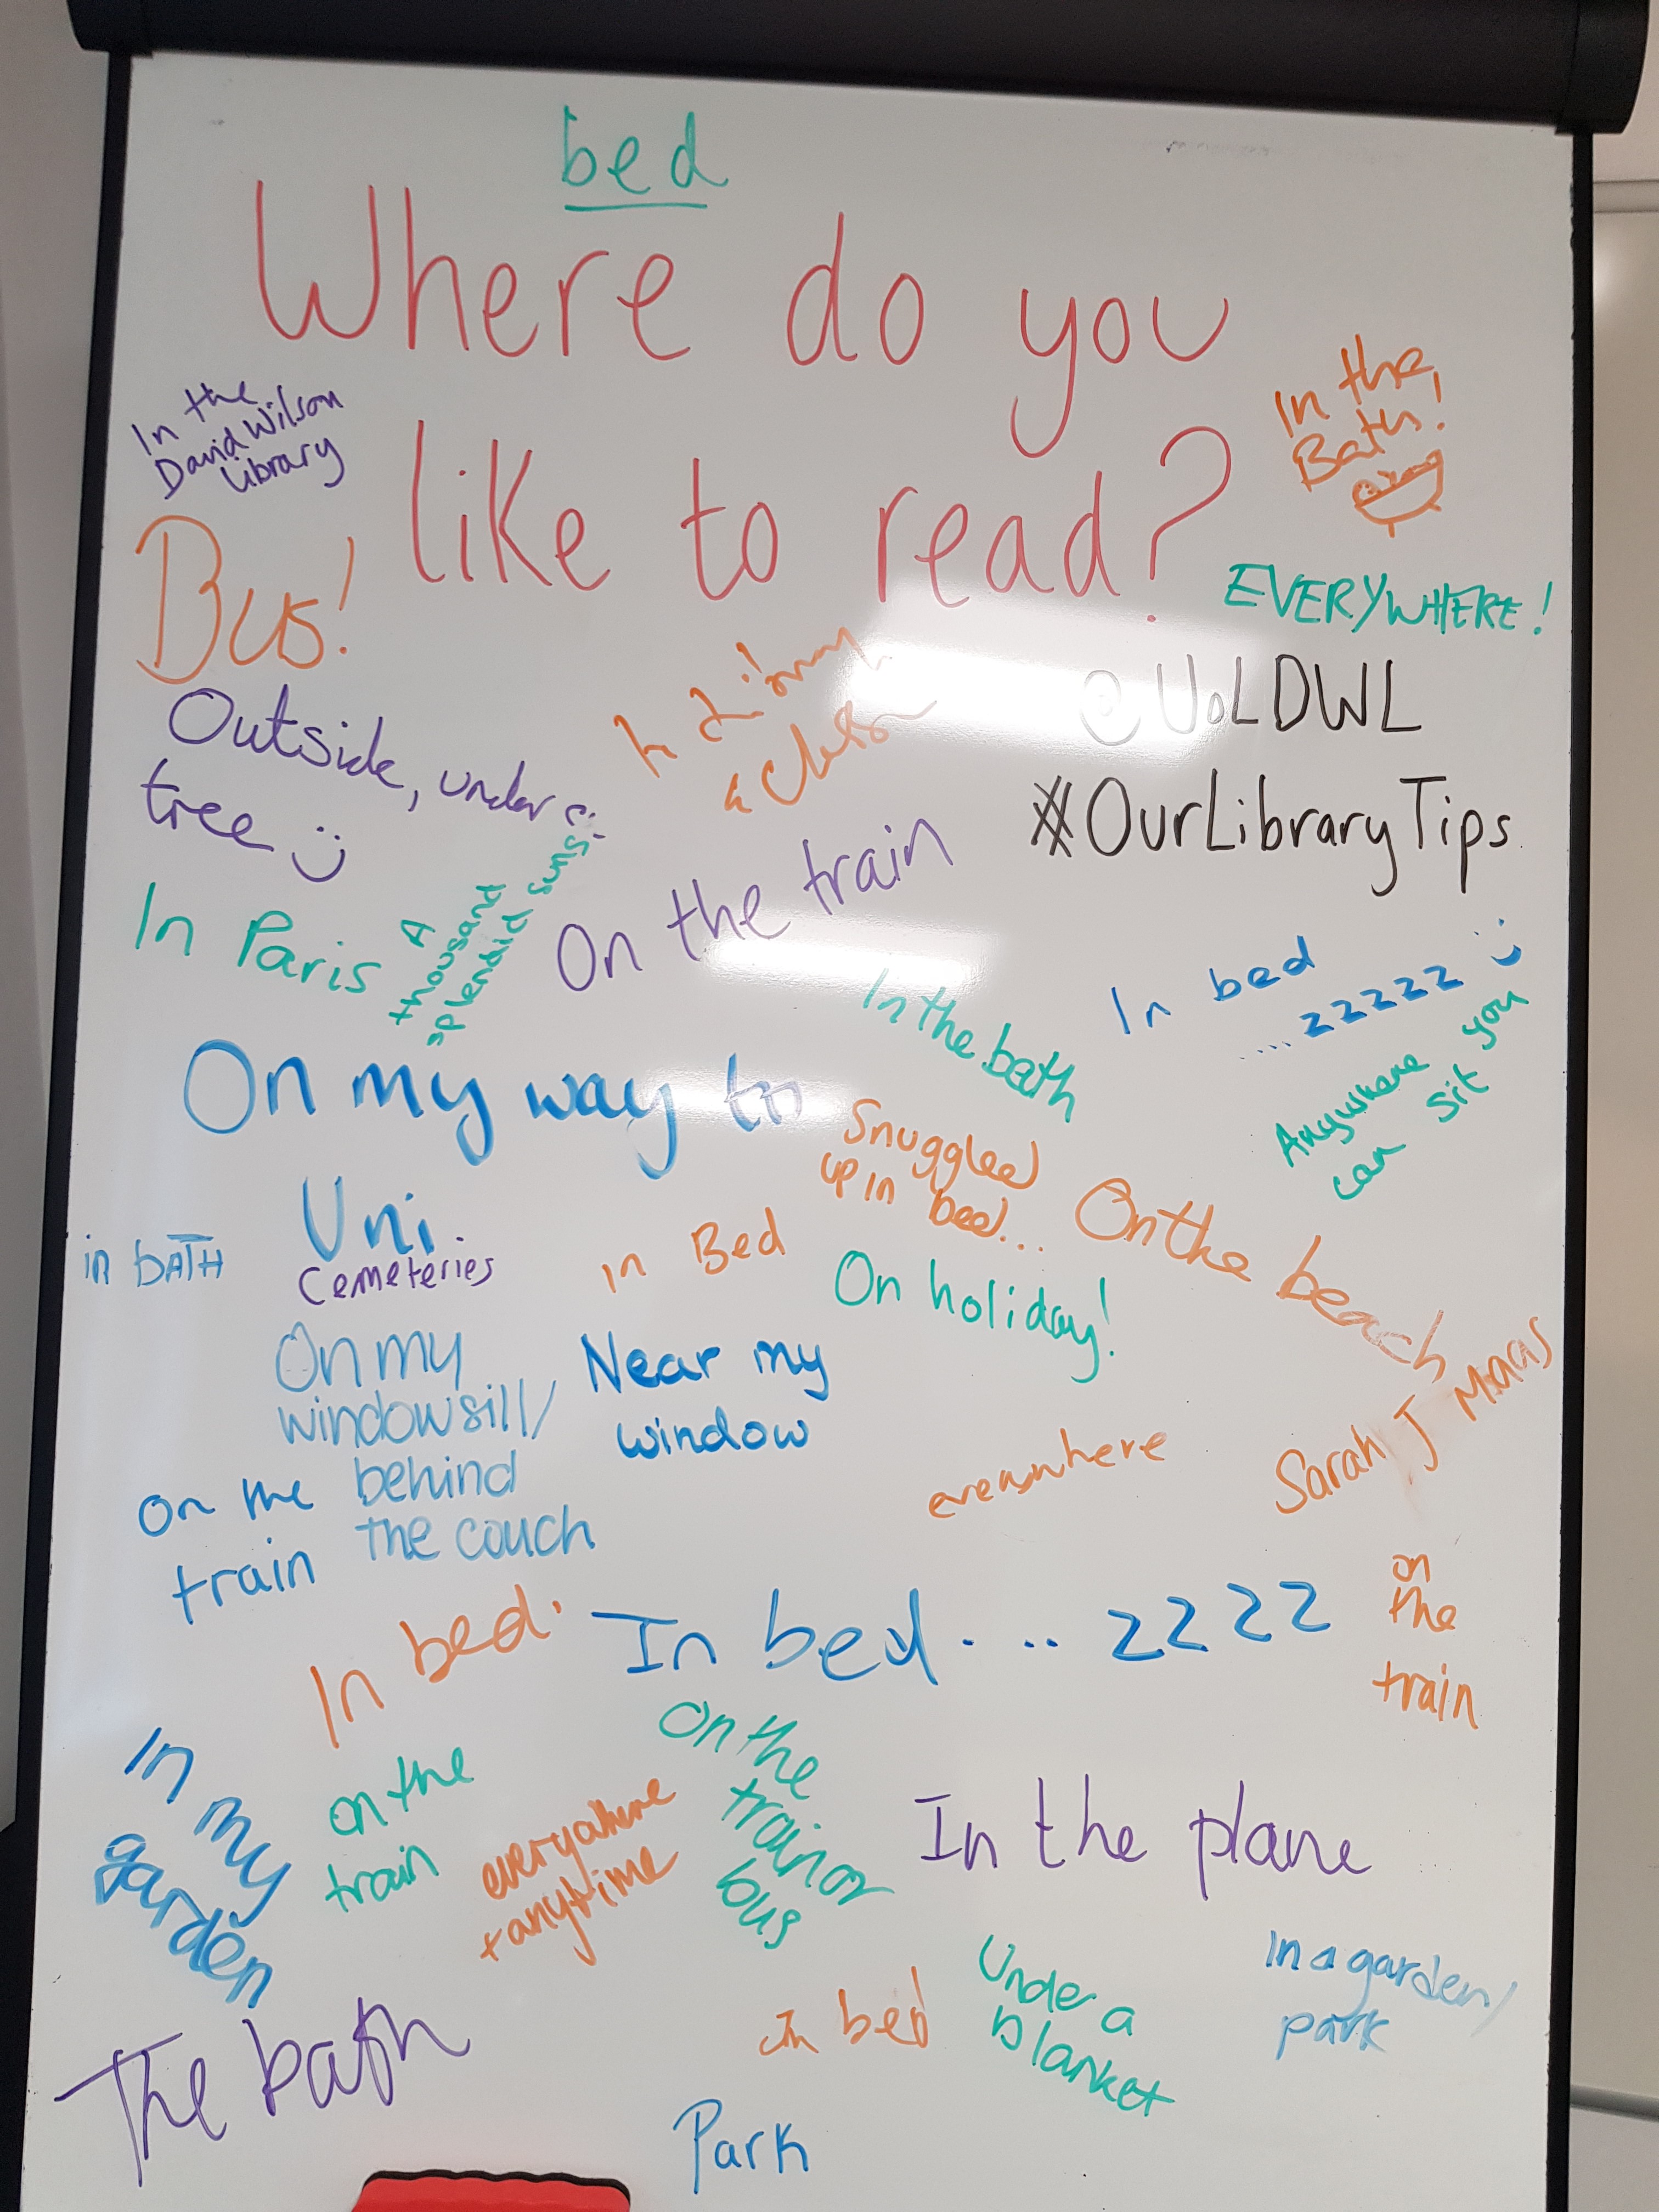 bed
Where do you
like to read?
In the
David Wilson
Library
In the
Bath!
Bus!
EVERYWHERE!
@UoLDWL
#OurLibraryTips
Outside, under a
tree :)
In Paris
A
thousand
splendid suns
On the train
In the bath
In bed
....zzzzz :)
Anywhere you
can sit
On my way to
Uni.
Snuggled
up in
bed...
On the beach
in bATH
Cemeteries
in Bed
On holiday!
On my
windowsill/
behind
the couch
Near my
window
Sarah J Maas
on the
train
everywhere
In bed.
In bed.... zzzz
on
the
train
In my
garden
on the
train
everywhere
+ anytime
On the
train or
bus
In the plane
The bath
In bed
Under a
blanket
In a garden/
park
Park